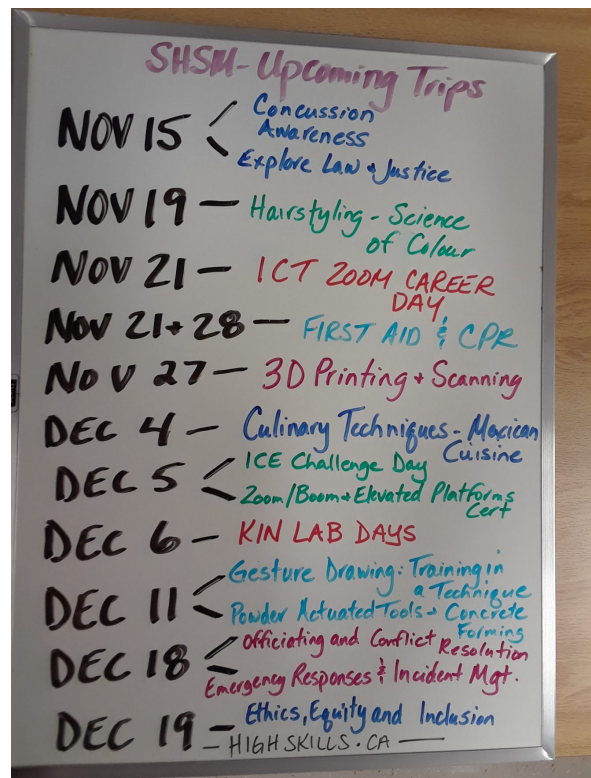 SHSM - Upcoming Trips
NOV 15 Concussion
Awareness
Explore Law + Justice
NOV 19 - Hairstyling - Science
of Colour
NOV 21 - ICT ZOOM CAREER
DAY
NOV 21 + 28 - FIRST AID & CPR
NOV 27 - 3D Printing + Scanning
DEC 4 - Culinary Techniques - Mexican
Cuisine
DEC 5 ICE Challenge Day
Zoom/Boom + Elevated Platforms
Cert
DEC 6 - KIN LAB DAYS
DEC 11 Gesture Drawing: Training in
a Technique
Powder Actuated Tools + Concrete
Forming
DEC 18 Officiating and Conflict Resolution
Emergency Responses & Incident Mgt.
DEC 19 - Ethics, Equity and Inclusion
- HIGHSKILLS.CA -